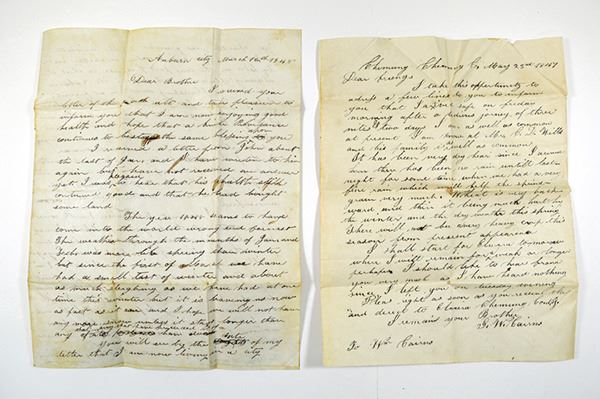 Auburn city March 16th 1848
Dear Brother
I received your
letter of the inst and take pleasure to
inform you that I am now enjoying good
health and hope that a kind Providence
continues to bestow the same blessing upon you
I received a letter from John about
the last of Jan and I have written to him
again but have not received an answer
yet I was pleased to hear that his health still
continued good and that he had bought
some land
The year 1848 seems to have
come into the world wrong end foremost
The weather through the months of Jan and
Feb was more like spring than winter
but since the first of March we have
had a small taste of winter and about
as much sleighing as we have had at one
time this winter but it is leaving us now
as fast as it can and I hope we will not have
any more snow unless it stays longer than
any of
You will see by the of my
letter that I am now living in a city
Chemung Chemung Co May 23d 1847
Dear friends
I take this opportunity to
adress a few lines to you to inform
you that I arrived safe on friday
morning after a tedious journey of three
nites & two days I am as well as common
at present I am now at Mrs C. T. Wells
and his family is well as common
It has been very dry hear since I came
here there has been no rain untill last
night for some time when we had a very
fine rain which will help the spring
grain very much. Wheat is very
and then it being much hurt by
the winter and the dry weather this spring
There will not be a very heavy crop this
season from present appearance
I shall start for Elmira tomorrow
where I will remain for a week or longer
perhaps I should like to hear from
you very much as I have heard nothing
since I left you on tuesday evening
Pleas right as soon as you receive this
and direct to Elmira Chemung County
I remains your Brother
J. W. Cairns
To Wm Cairns